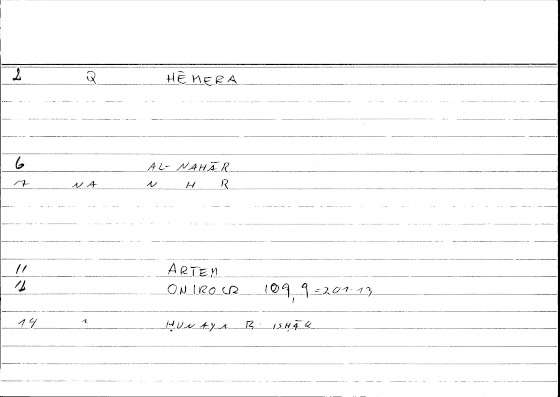 2 Q HĒMERA
6 AL-NAHĀR
7 NA N H R
11 ARTEM
12 ONIROCR 109,9=201.13
14 1 ḤUNAYN B. ISḤĀQ